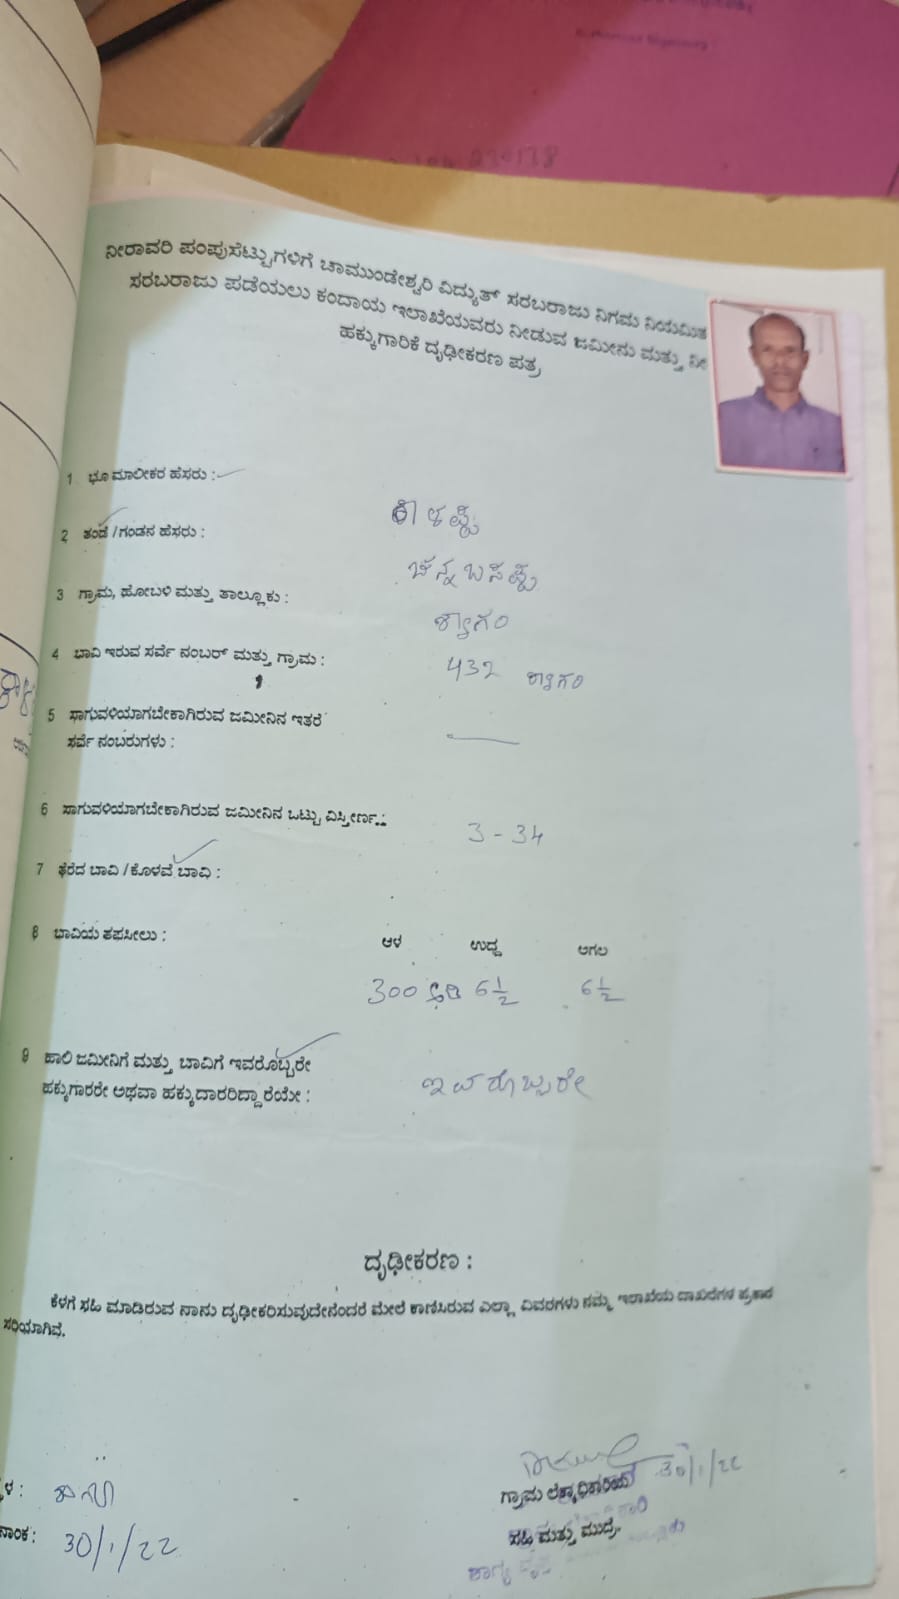 ನೀರಾವರಿ ಪಂಪುಸೆಟ್ಟುಗಳಿಗೆ ಚಾಮುಂಡೇಶ್ವರಿ ವಿದ್ಯುತ್ ಸರಬರಾಜು ನಿಗಮ ನಿಯಮಿತ
ಸರಬರಾಜು ಪಡೆಯಲು ಕಂದಾಯ ಇಲಾಖೆಯವರು ನೀಡುವ ಜಮೀನು ಮತ್ತು ನೀ
ಹಕ್ಕುಗಾರಿಕೆ ದೃಢೀಕರಣ ಪತ್ರ
1 ಭೂ ಮಾಲೀಕರ ಹೆಸರು :
2 ತಂದೆ / ಗಂಡನ ಹೆಸರು :
ಚಿನ್ನಬಸಪ್ಪ
3 ಗ್ರಾಮ, ಹೋಬಳಿ ಮತ್ತು ತಾಲ್ಲೂಕು :
4 ಬಾವಿ ಇರುವ ಸರ್ವೆ ನಂಬರ್ ಮತ್ತು ಗ್ರಾಮ : 432
5 ಸಾಗುವಳಿಯಾಗಬೇಕಾಗಿರುವ ಜಮೀನಿನ ಇತರೆ
ಸರ್ವೆ ನಂಬರುಗಳು :
6 ಸಾಗುವಳಿಯಾಗಬೇಕಾಗಿರುವ ಜಮೀನಿನ ಒಟ್ಟು ವಿಸ್ತೀರ್ಣ : 3 - 34
7 ತೆರೆದ ಬಾವಿ / ಕೊಳವೆ ಬಾವಿ :
8 ಬಾವಿಯ ತಪಸೀಲು : ಆಳ ಉದ್ದ ಅಗಲ
300 ಅಡಿ 6½ 6½
9 ಹಾಲಿ ಜಮೀನಿಗೆ ಮತ್ತು ಬಾವಿಗೆ ಇವರೊಬ್ಬರೇ
ಹಕ್ಕುಗಾರರೇ ಅಥವಾ ಹಕ್ಕುದಾರರಿದ್ದಾರೆಯೇ : ಇವರೊಬ್ಬರೇ
ದೃಢೀಕರಣ :
ಕೆಳಗೆ ಸಹಿ ಮಾಡಿರುವ ನಾನು ದೃಢೀಕರಿಸುವುದೇನೆಂದರೆ ಮೇಲೆ ಕಾಣಿಸಿರುವ ಎಲ್ಲಾ ವಿವರಗಳು ನಮ್ಮ ಇಲಾಖೆಯ ದಾಖಲೆಗಳ ಪ್ರಕಾರ
ಸರಿಯಾಗಿವೆ.
30/1/22
ಗ್ರಾಮ ಲೆಕ್ಕಾಧಿಕಾರಿಯ
ಸಹಿ ಮತ್ತು ಮುದ್ರೆ
ನಾಂಕ : 30/1/22